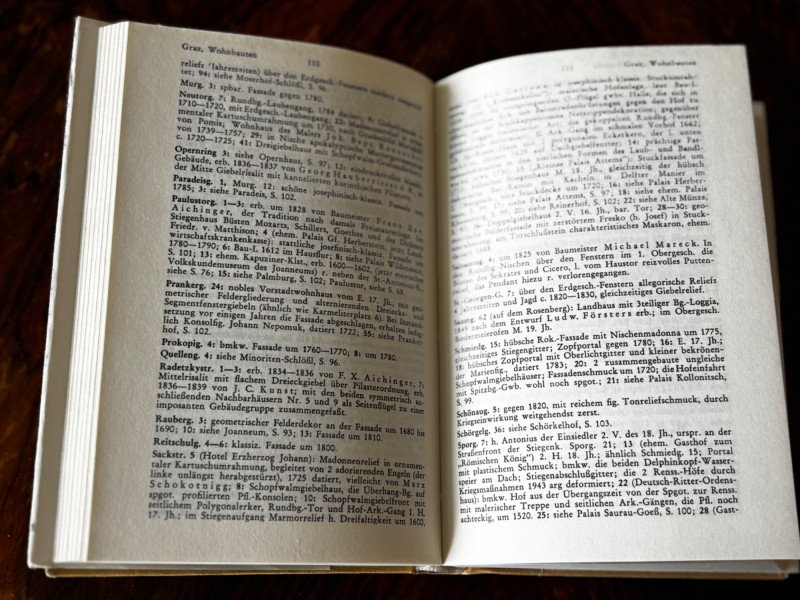 Graz, Wohnbauten
110
reliefs (Jahreszeiten) über den Erdgesch.-Fenstern
tet; 94: siehe Moserhof-Schlößl, S. 96.
Murg. 3: spbar. Fassade gegen 1780.
Neutorg. 7: Rundbg.-Laubengang, 1784 datiert; 8:
1710—1720, mit Erdgesch.-Laubengang; 20:
mentaler Kartuschumrahmung um 1730, nach
von Pomis; Wohnhaus des Malers
von 1739—1757; 29: in Nische apokalyptische
c. 1720—1725; 41: Dreigiebelhaus mit Schopfwalmgiebeln
Opernring 3: siehe Opernhaus, S. 97; 12:
Gebäude, erb. 1836—1837 von Georg Hauberrisser
der Mitte Giebelrisalit mit kannelierten korinthischen
Paradeisg. 1, Murg. 12: schöne josephinisch-klassiz. Fassade
1785; 3: siehe Paradeis, S. 102.
Paulustorg. 1—3: erb. um 1828 von Baumeister Franz Xav.
Aichinger, der Tradition nach damals Freimaurerloge, im
Stiegenhaus Büsten Mozarts, Schillers, Goethes und des
Friedr. v. Matthison; 4 (ehem. Palais Gf. Herberstein, jetzt Land-
wirtschaftskrankenkasse): stattliche josefinisch-klassiz. Fassade
1780—1790; 6: Bau-I. 1612 im Hausflur; 8: siehe Palais
S. 101; 13: ehem. Kapuziner-Klst., erb. 1600—1602, (jetzt steir.
Volkskundemuseum des Joanneums) r. neben der St.-Antonius-K.,
siehe S. 76; 15: siehe Palmburg, S. 102; Paulustor, siehe S. 68.
Prankerg. 24: nobles Vorstadtwohnhaus vom E. 17. Jh., mit geo-
metrischer Feldergliederung und alternierenden Dreiecks- und
Segmentfenstergiebeln (ähnlich wie Karmeliterplatz 6). Bei Instand-
setzung vor einigen Jahren die Fassade abgeschlagen, erhalten ledig-
lich Konsolfig. Johann Nepomuk, datiert 1722; 55: siehe Pranker-
hof, S. 102.
Prokopig. 4: bmkw. Fassade um 1760—1770; 8: um 1780.
Quelleng. 4: siehe Minoriten-Schlößl, S. 96.
Radetzkystr. 1—3: erb. 1834—1836 von F. X. Aichinger; 7:
Mittelrisalit mit flachem Dreieckgiebel über Pilasterordnung, erb.
1836—1839 von J. C. Kunst; mit den beiden symmetrisch an-
schließenden Nachbarhäusern Nr. 5 und 9 als Seitenflügel zu einer
imposanten Gebäudegruppe zusammengefaßt.
Rauberg. 3: geometrischer Felderdekor an der Fassade um 1680 bis
1690; 10: siehe Joanneum, S. 93; 13: Fassade um 1810.
Reitschulg. 4—6: klassiz. Fassade um 1800.
Sackstr. 5 (Hotel Erzherzog Johann): Madonnenrelief in ornamen-
taler Kartuschumrahmung, begleitet von 2 adorierenden Engeln (der
linke unlängst herabgestürzt), 1725 datiert, vielleicht von Marx
Schokotnigg; 8: Schopfwalmgiebelhaus, die Überhang-Bg. auf
spgot. profilierten Pfl.-Konsolen; 10: Schopfwalmgiebelfront mit
seitlichem Polygonalerker, Rundbg.-Tor und Hof-Ark.-Gang 1. H.
17. Jh.; im Stiegenaufgang Marmorrelief h. Dreifaltigkeit um 1600,
111
Graz, Wohnbauten
josephinisch-klassiz. Stuckumrah-
malerische Hofanlage, laut Bau-I.
O.-Flügel gwbt. Halle, die sich in
gegen den Hof zu
Netzrippendekorationen; gegenüber
gekuppelten Rundbg.-Fenster
Ark.-Gang im schmalen Vorhof 1642;
der I. unten
Dachgiebelfenster; 14: prächtige Fas-
zeitlichen Formen des Laub- und Bandl-
Kleines Palais Attems"): Stuckfassade um
M. 18. Jh., gleichzeitig der hübsch
mit Kacheln in Delfter Manier im
Stuckdecke um 1720; 16: siehe Palais Herber-
siehe Palais Attems, S. 97; 18: siehe ehem. Palais
20: siehe Reinerhof, S. 102; 22: siehe Alte Münze,
Doppelgiebelhaus 2. V. 16. Jh., bar. Tor; 28—30: geo-
Felderfassade mit zerstörtem Fresko (h. Josef) in Stuck-
am Torschlußstein charakteristisches Maskaron, ehem.
1688.
4: um 1825 von Baumeister Michael Mareck. In
Rundbg.-Nischen über den Fenstern im 1. Obergesch. die
des Sokrates und Cicero, l. vom Haustor reizvolles Putten-
das Pendant hiezu r. verlorengegangen.
St.-Georgen-G. 7: über den Erdgesch.-Fenstern allegorische Reliefs
4 Jahreszeiten und Jagd c. 1820—1830, gleichzeitiges Giebelrelief.
62 (auf dem Rosenberg): Landhaus mit 3teiliger Bg.-Loggia,
1849 nach dem Entwurf Ludw. Försters erb.; im Obergesch.
Biedermeierofen M. 19. Jh.
Schmiedg. 15: hübsche Rok.-Fassade mit Nischenmadonna um 1775,
gleichzeitiges Stiegengitter; Zopfportal gegen 1780; 16: E. 17. Jh.;
18: hübsches Zopfportal mit Oberlichtgitter und kleiner bekrönen-
der Marienfig., datiert 1783; 20: 2 zusammengebaute ungleiche
Schopfwalmgiebelhäuser; Fassadenschmuck um 1720; die Hofeinfahrt
mit Spitzbg.-Gwb. wohl noch spgot.; 21: siehe Palais Kollonitsch,
S. 99.
Schönaug. 5: gegen 1820, mit reichem fig. Tonreliefschmuck, durch
Kriegseinwirkung weitgehendst zerst.
Schörgelg. 36: siehe Schörkelhof, S. 103.
Sporg. 7: h. Antonius der Einsiedler 2. V. des 18. Jh., urspr. an der
Straßenfront der Stiegenk. Sporg. 21; 13 (ehem. Gasthof zum
„Römischen König") 2. H. 18. Jh.; ähnlich Schmiedg. 15; Portal
mit plastischem Schmuck; bmkw. die beiden Delphinkopf-Wasser-
speier am Dach; Stiegenabschlußgitter; die 2 Renss.-Höfe durch
Kriegsmaßnahmen 1943 arg deformiert; 22 (Deutsch-Ritter-Ordens-
haus): bmkw. Hof aus der Übergangszeit von der Spgot. zur Renss.
mit malerischer Treppe und seitlichen Ark.-Gängen, die Pfl. noch
achteckig, um 1520. 25: siehe Palais Saurau-Goeß, S. 100; 28 (Gast-